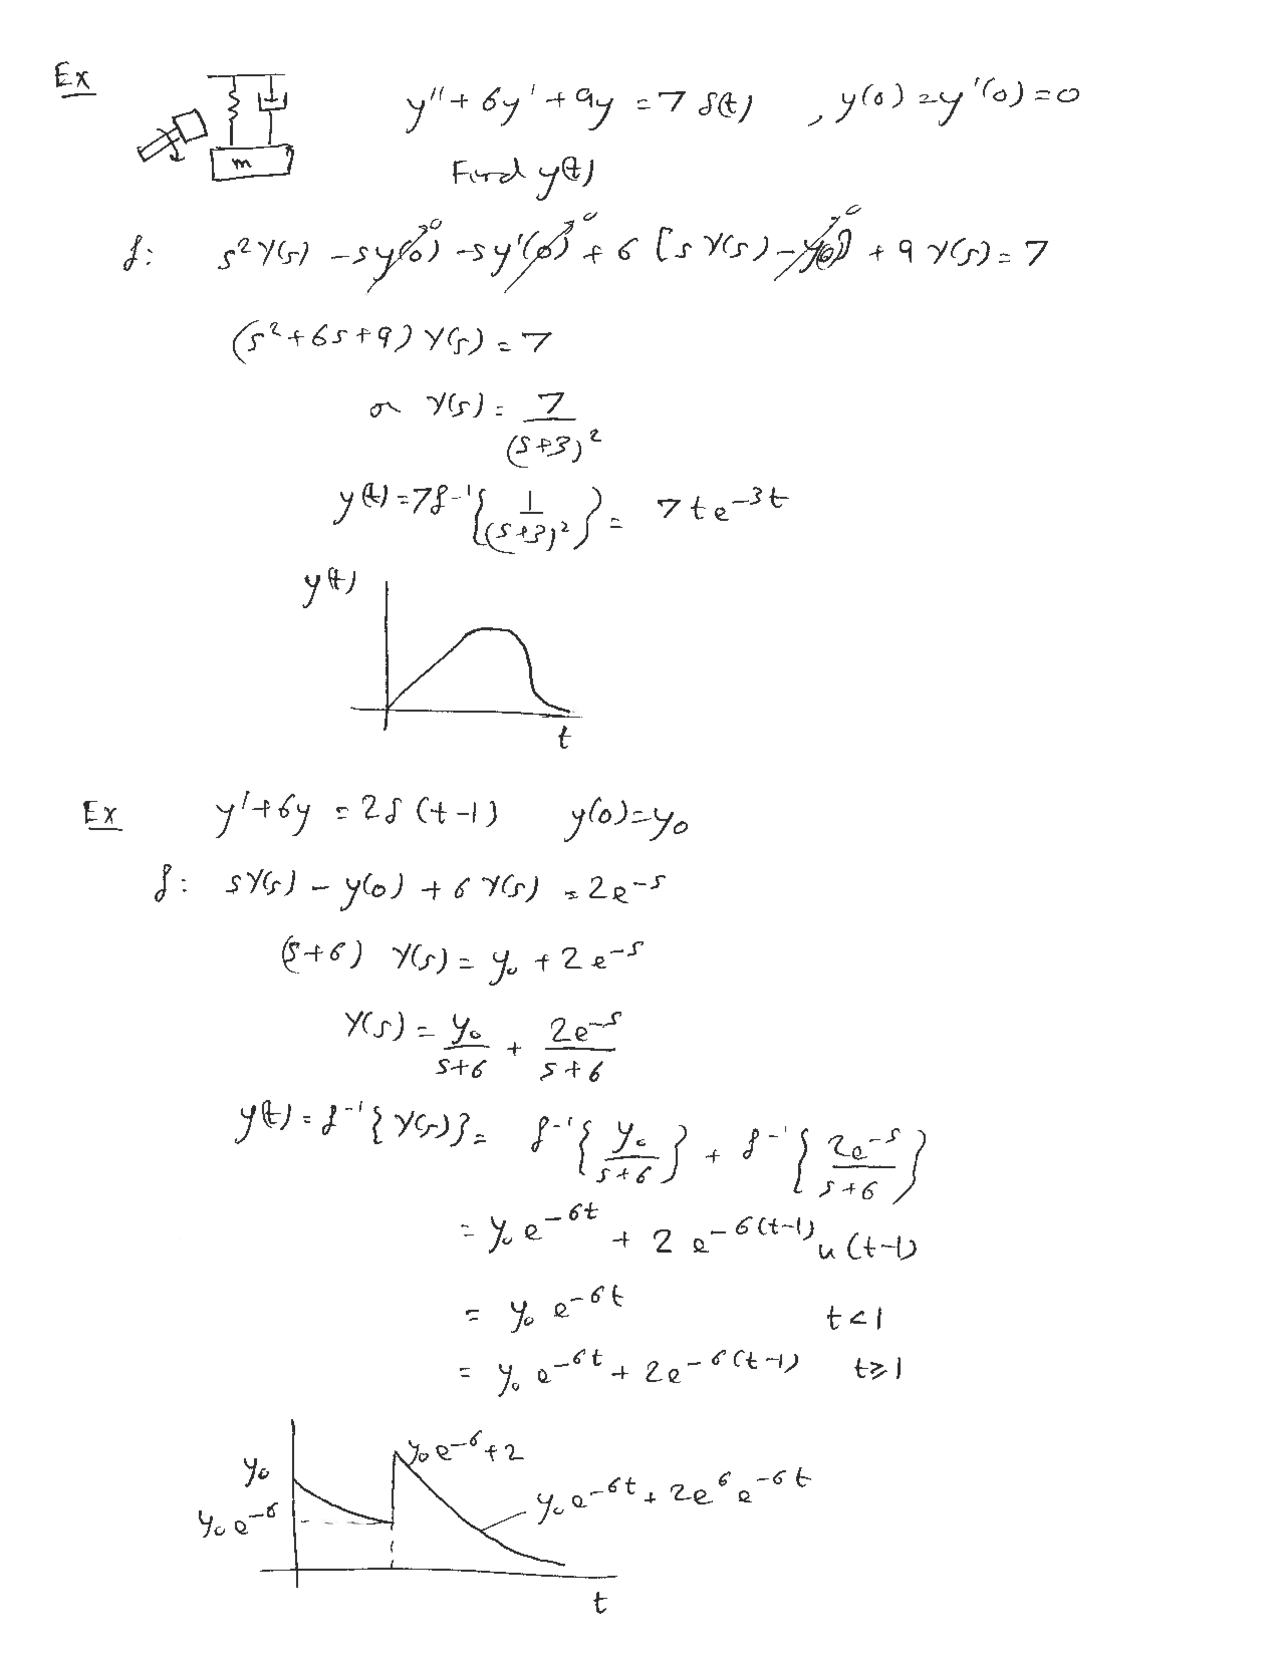 Ex y'' + 6y' + 9y = 7 δ(t) , y(0) = y'(0) = 0
m
Find y(t)
ℒ: s²Y(s) - sy(0)⁰ - sy'(0)⁰ + 6 [sY(s) - y(0)⁰] + 9Y(s) = 7
(s² + 6s + 9) Y(s) = 7
or Y(s) = 7/(s+3)²
y(t) = 7ℒ⁻¹{1/(s+3)²} = 7te^(-3t)
y(t)
t
Ex y' + 6y = 2δ(t-1) y(0) = y₀
ℒ: sY(s) - y(0) + 6Y(s) = 2e^(-s)
(s+6) Y(s) = y₀ + 2e^(-s)
Y(s) = y₀/(s+6) + 2e^(-s)/(s+6)
y(t) = ℒ⁻¹{Y(s)} = ℒ⁻¹{y₀/(s+6)} + ℒ⁻¹{2e^(-s)/(s+6)}
= y₀e^(-6t) + 2e^(-6(t-1)) u(t-1)
= y₀e^(-6t) t<1
= y₀e^(-6t) + 2e^(-6(t-1)) t≥1
y₀e^(-6)+2
y₀
y₀e^(-6t) + 2e^6 e^(-6t)
y₀e^(-6)
t